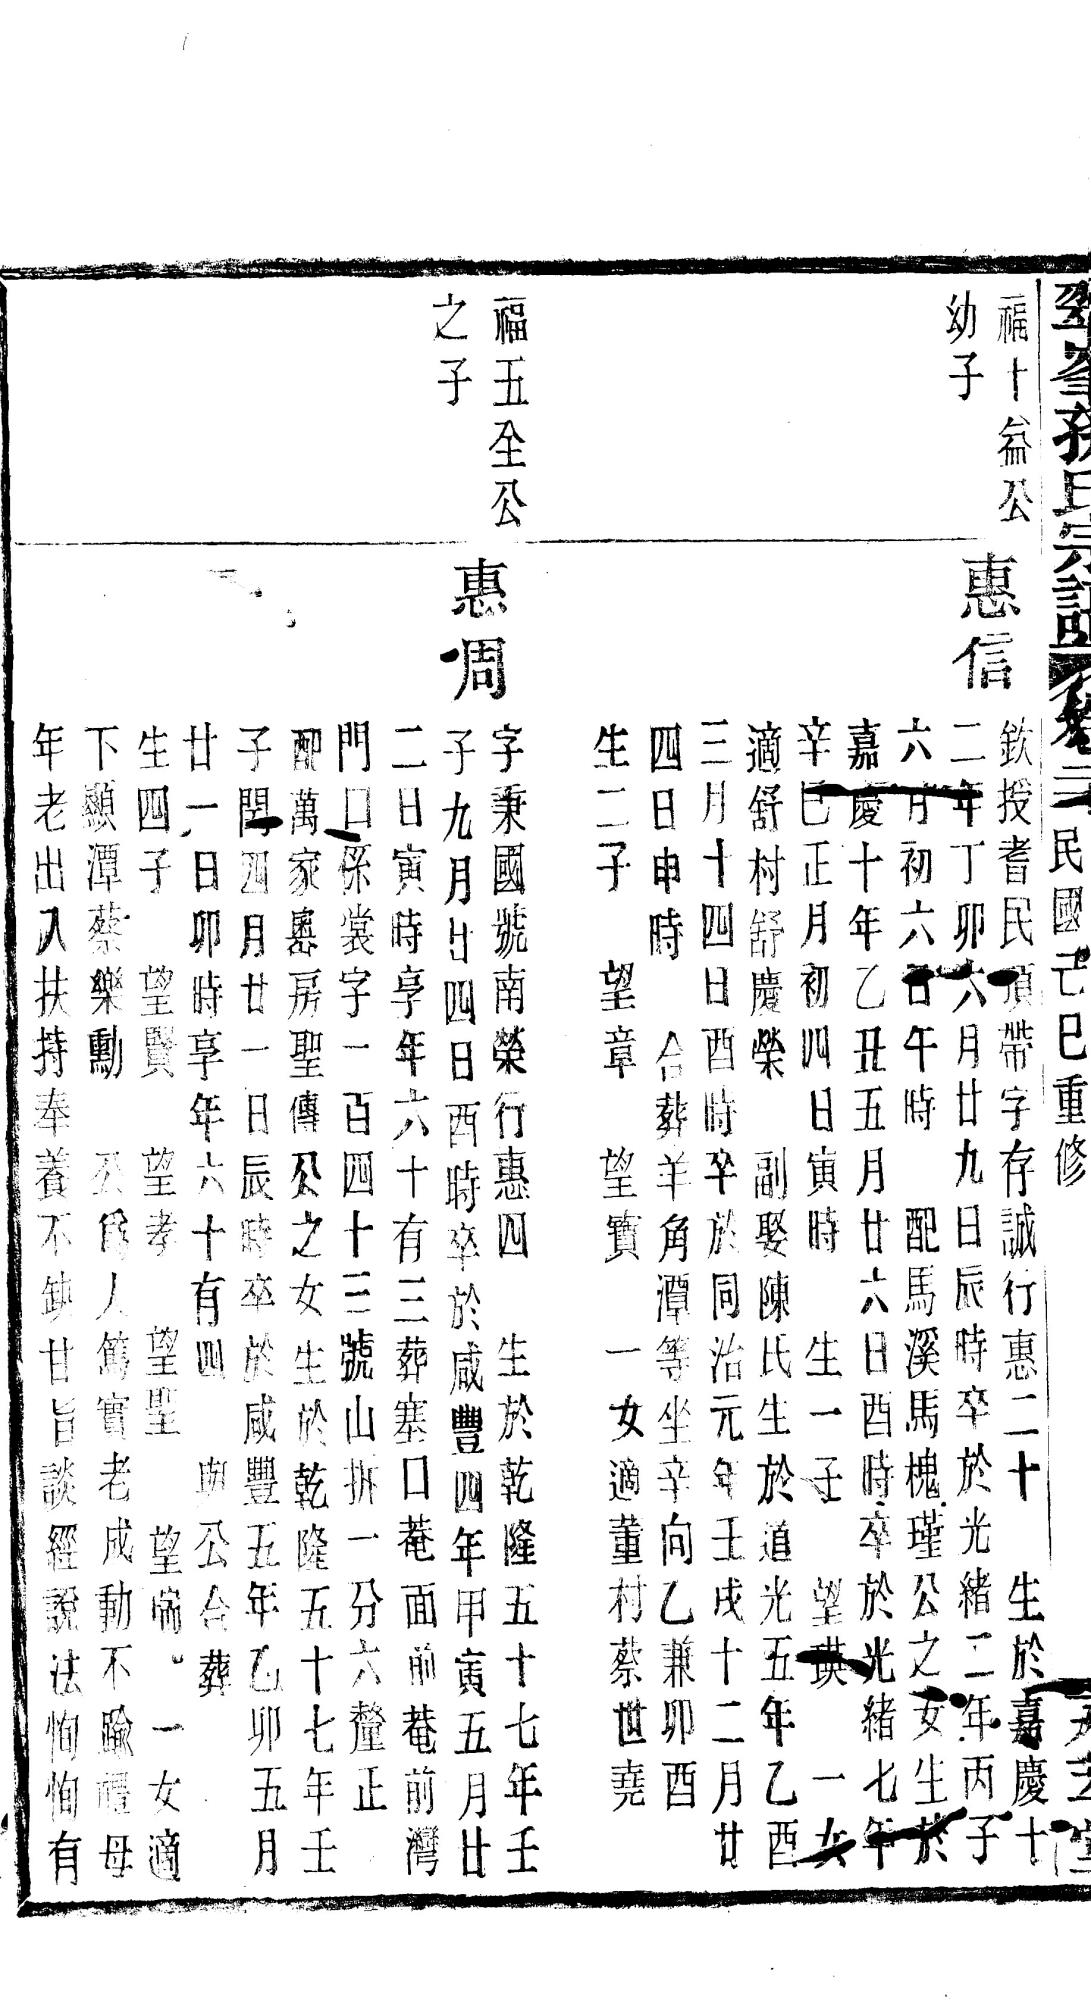 峯孫氏宗譜 卷二 民國己巳重修
福十益公
幼子
惠信
欽授耆民頂帶字存誠行惠二十 生於嘉慶十
二年丁卯六月廿九日辰時卒於光緒二年丙子
六月初六日午時 配馬溪馬槐瑾公之女生於
嘉慶十年乙丑五月廿六日酉時卒於光緒七年
辛巳正月初四日寅時 生一子 望瑛 一女
適舒村舒慶榮 副娶陳氏生於道光五年乙酉
三月十四日酉時卒於同治元年壬戌十二月廿
四日申時 合葬羊角潭等坐辛向乙兼卯酉
生二子 望章 望寶 一女適董村蔡世堯
福五全公
之子
惠周
字秉國號南榮行惠四 生於乾隆五十七年壬
子九月廿四日酉時卒於咸豐四年甲寅五月廿
二日寅時享年六十有三葬塞口菴面前菴前灣
門口係裳字一百四十三號山拆一分六釐正
配萬家嶴房聖傳公之女生於乾隆五十七年壬
子閏四月廿一日辰時卒於咸豐五年乙卯五月
廿一日卯時享年六十有四 與公合葬
生四子 望賢 望孝 望聖 望喘 一女適
下顯潭蔡樂勳 公爲人篤實老成動不踰禮母
年老出入扶持奉養不缺甘旨談經說法恂恂有